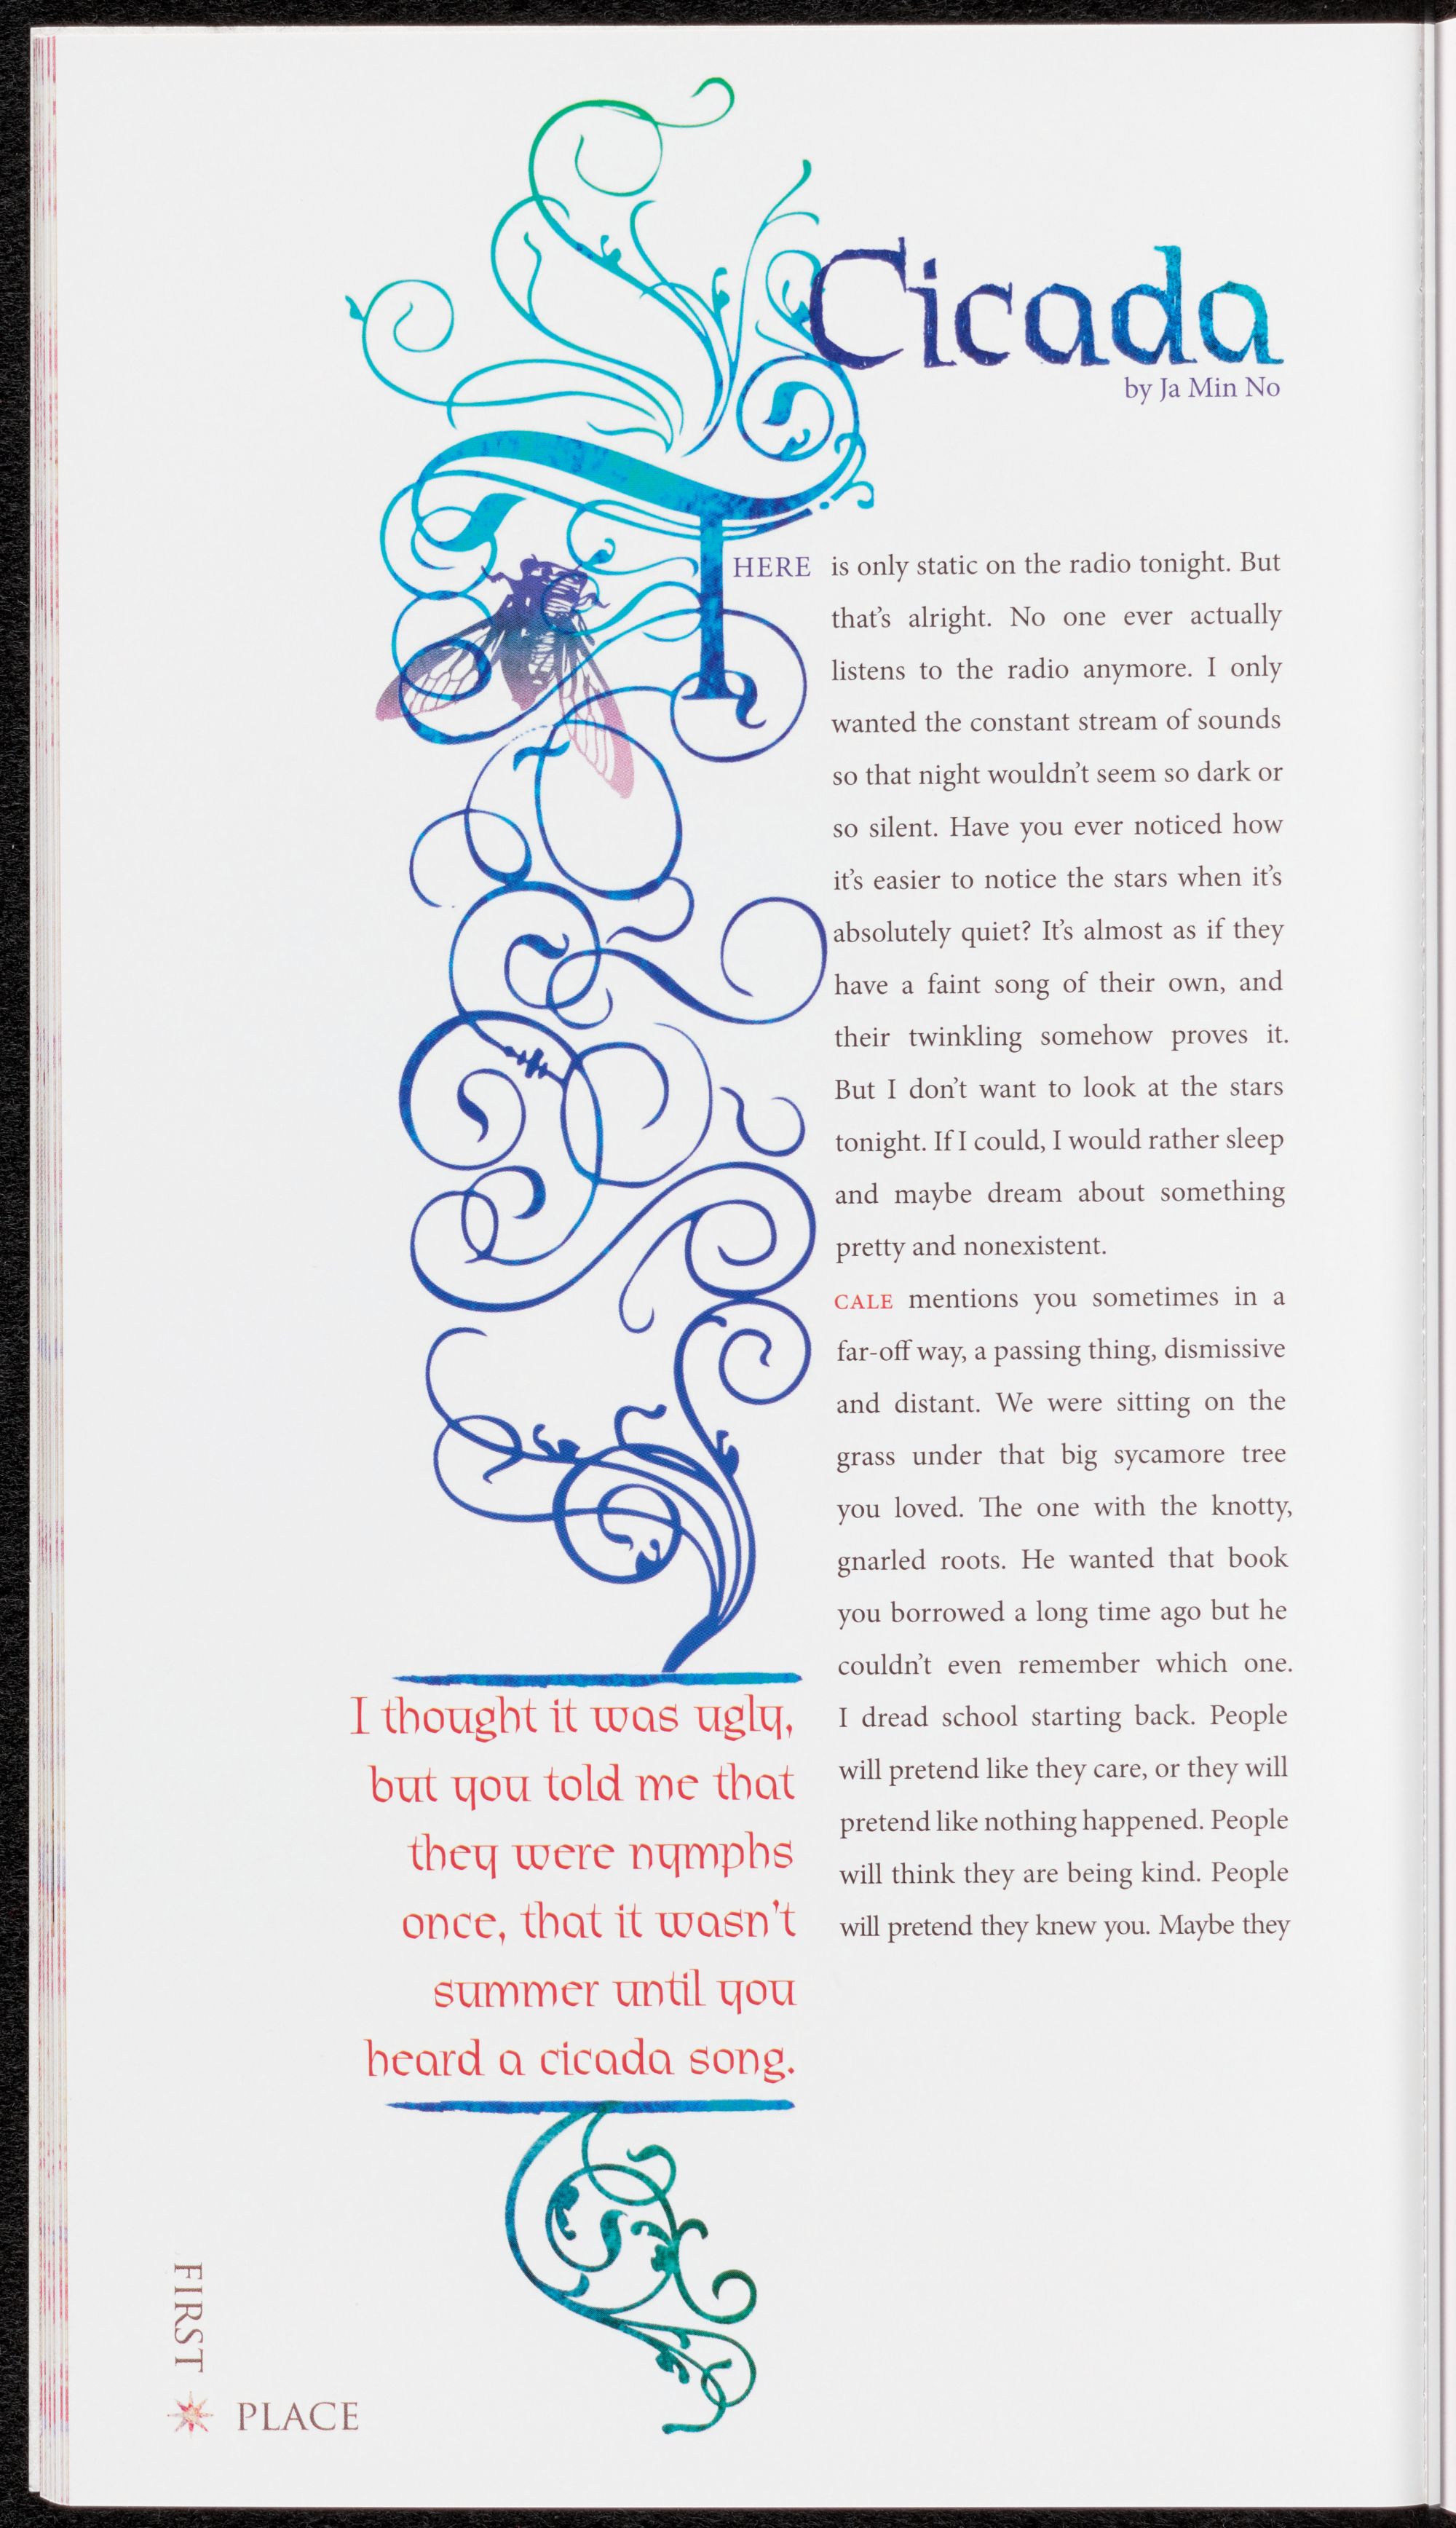 Cicada
by Ja Min No
THERE is only static on the radio tonight. But
that's alright. No one ever actually
listens to the radio anymore. I only
wanted the constant stream of sounds
so that night wouldn't seem so dark or
so silent. Have you ever noticed how
it's easier to notice the stars when it's
absolutely quiet? It's almost as if they
have a faint song of their own, and
their twinkling somehow proves it.
But I don't want to look at the stars
tonight. If I could, I would rather sleep
and maybe dream about something
pretty and nonexistent.
CALE mentions you sometimes in a
far-off way, a passing thing, dismissive
and distant. We were sitting on the
grass under that big sycamore tree
you loved. The one with the knotty,
gnarled roots. He wanted that book
you borrowed a long time ago but he
couldn't even remember which one.
I dread school starting back. People
will pretend like they care, or they will
pretend like nothing happened. People
will think they are being kind. People
will pretend they knew you. Maybe they
I thought it was ugly,
but you told me that
they were nymphs
once, that it wasn't
summer until you
heard a cicada song.
FIRST
PLACE